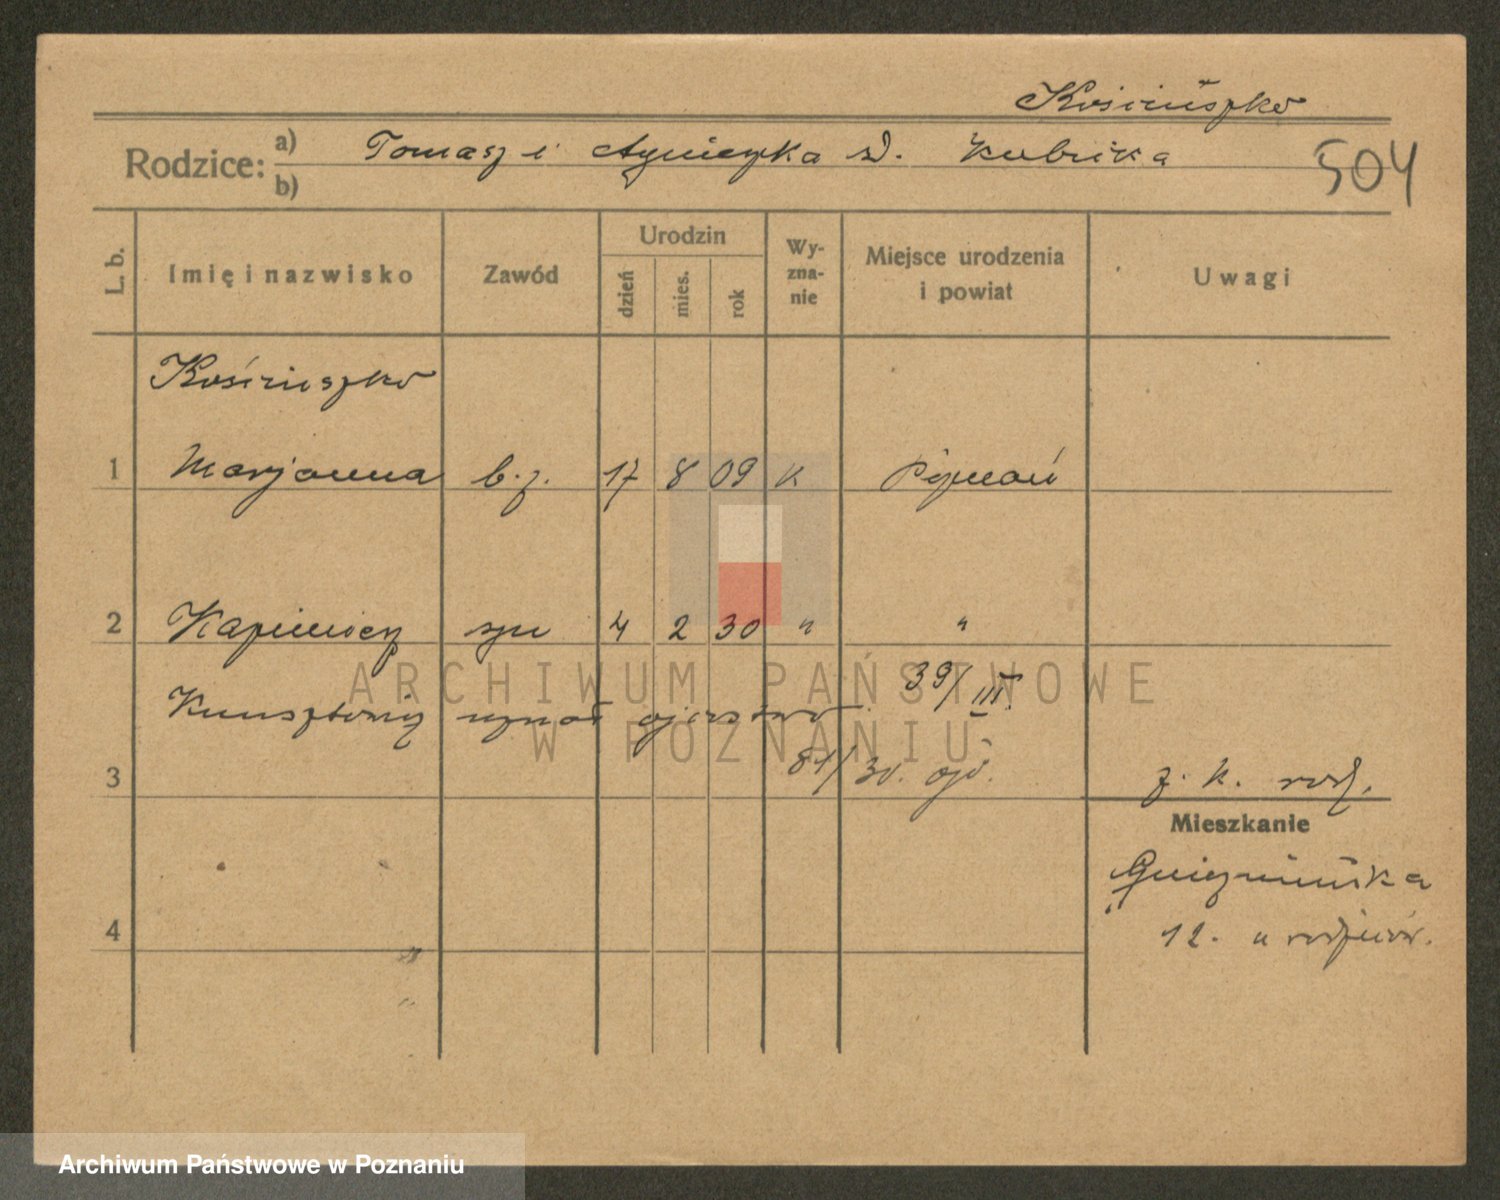 Kościuszko
Rodzice: a) Tomasz i Agnieszka z d. Kubzika
b)
504
L. b. Imię i nazwisko Zawód Urodzin dzień mies. rok Wy-zna-nie Miejsce urodzenia i powiat Uwagi
Kościuszko
1 Marjanna b. z. 17 8 09 k Poznań
2 Kazimierz syn 4 2 30 " "
39/III.
uznał ojcostwo
81/30.
3 z. k. rodz.
Mieszkanie
Gnieźnieńska
4 12. u rodziców.
ARCHIWUM PAŃSTWOWE
W POZNANIU
Archiwum Państwowe w Poznaniu